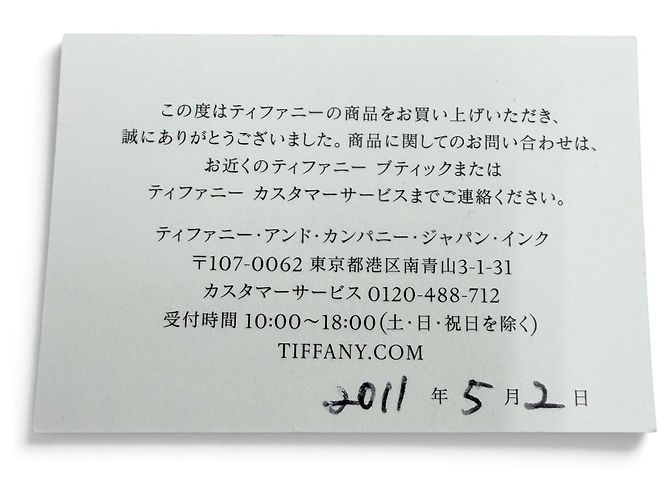 この度はティファニーの商品をお買い上げいただき、
誠にありがとうございました。商品に関してのお問い合わせは、
お近くのティファニー ブティックまたは
ティファニー カスタマーサービスまでご連絡ください。
ティファニー・アンド・カンパニー・ジャパン・インク
〒107-0062 東京都港区南青山3-1-31
カスタマーサービス 0120-488-712
受付時間 10:00〜18:00(土・日・祝日を除く)
TIFFANY.COM
2011 年 5 月 2 日